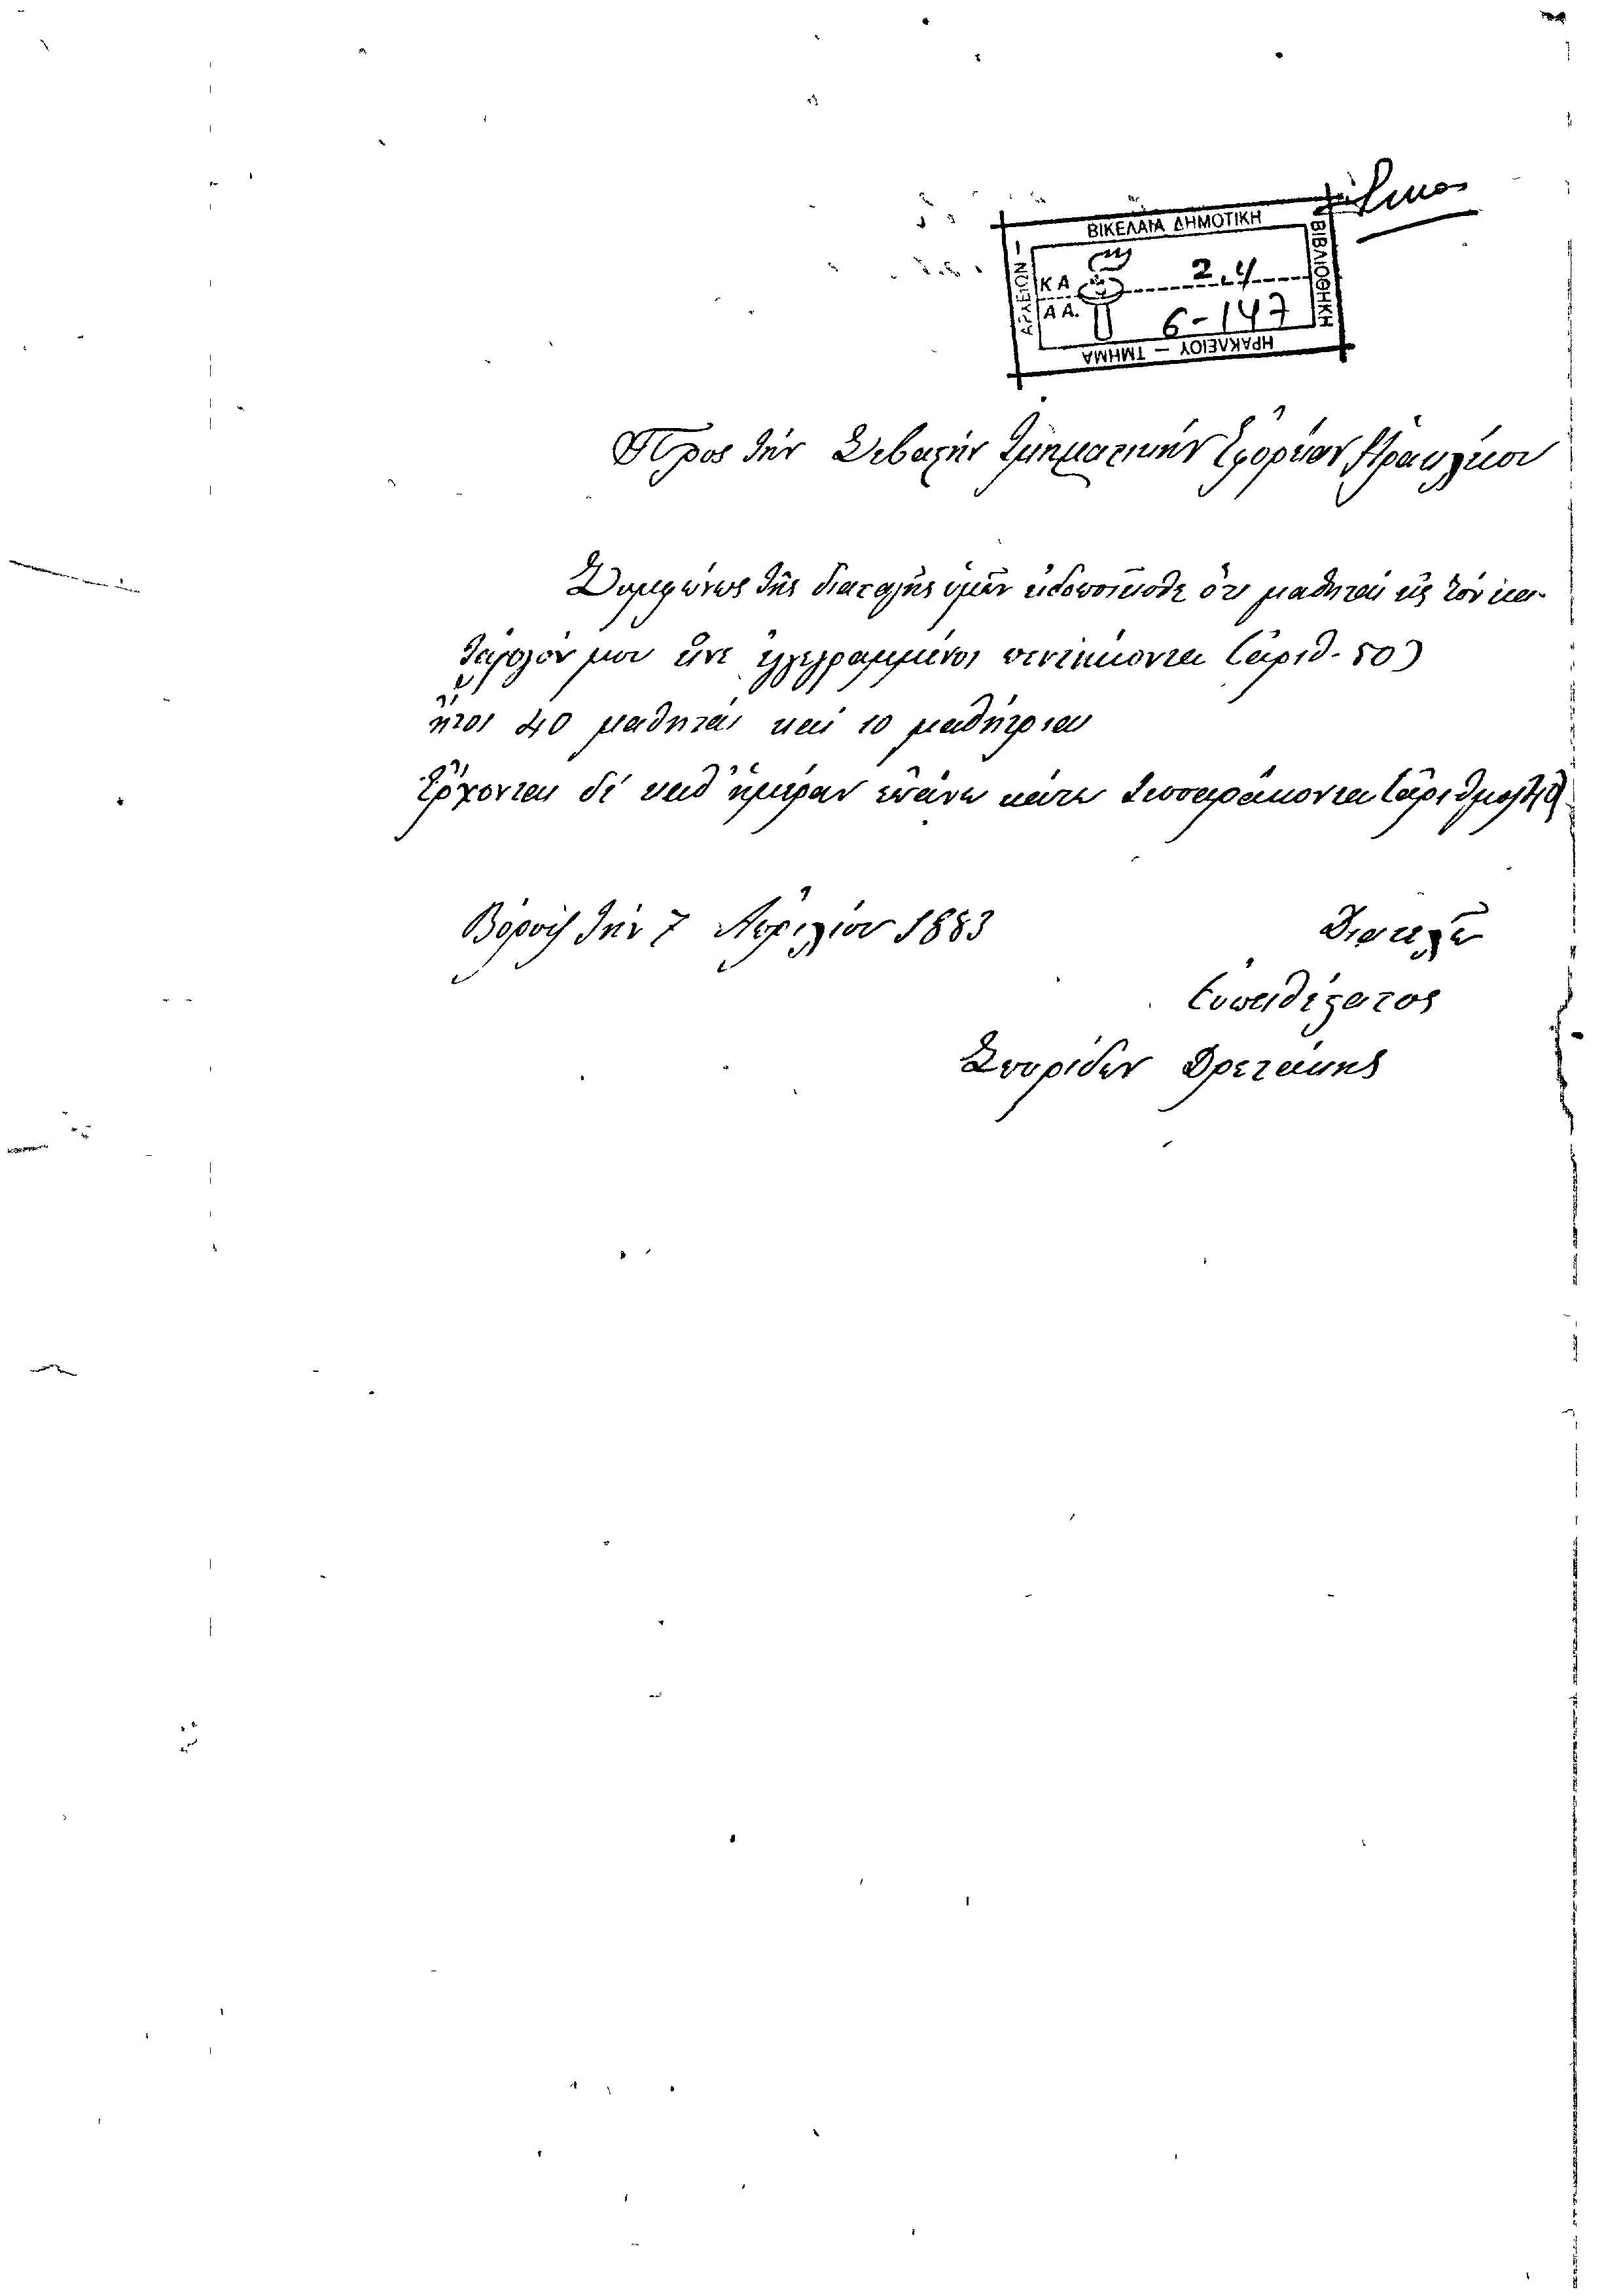 ΒΙΚΕΛΑΙΑ ΔΗΜΟΤΙΚΗ
ΒΙΒΛΙΟΘΗΚΗ
ΗΡΑΚΛΕΙΟΥ — ΤΜΗΜΑ
ΑΡΧΕΙΩΝ —
Κ Α 2.4
Α Α. 6-147
Πρός τήν Σεβαστήν Τμηματικήν Ἐφορείαν Ἡρακλείου
Συμφώνως τῆς διαταγῆς ὑμῶν εἰδοποιεῖσθε ὅτι μαθηταί εἰς τόν κα-
τάλογόν μου εἶνε ἐγγεγραμμένοι πεντήκοντα (ἀριθ. 50)
ἤτοι 40 μαθηταί καί 10 μαθήτριαι
Ἔρχονται δέ καθ' ἡμέραν ἐπάνω κάτω τεσσαράκοντα (ἀριθμος 40)
Βόρους τήν 7 Ἀπριλίου 1883
Διατελῶ
Εὐπειθέστατος
Σπυρίδων Δρετάκης